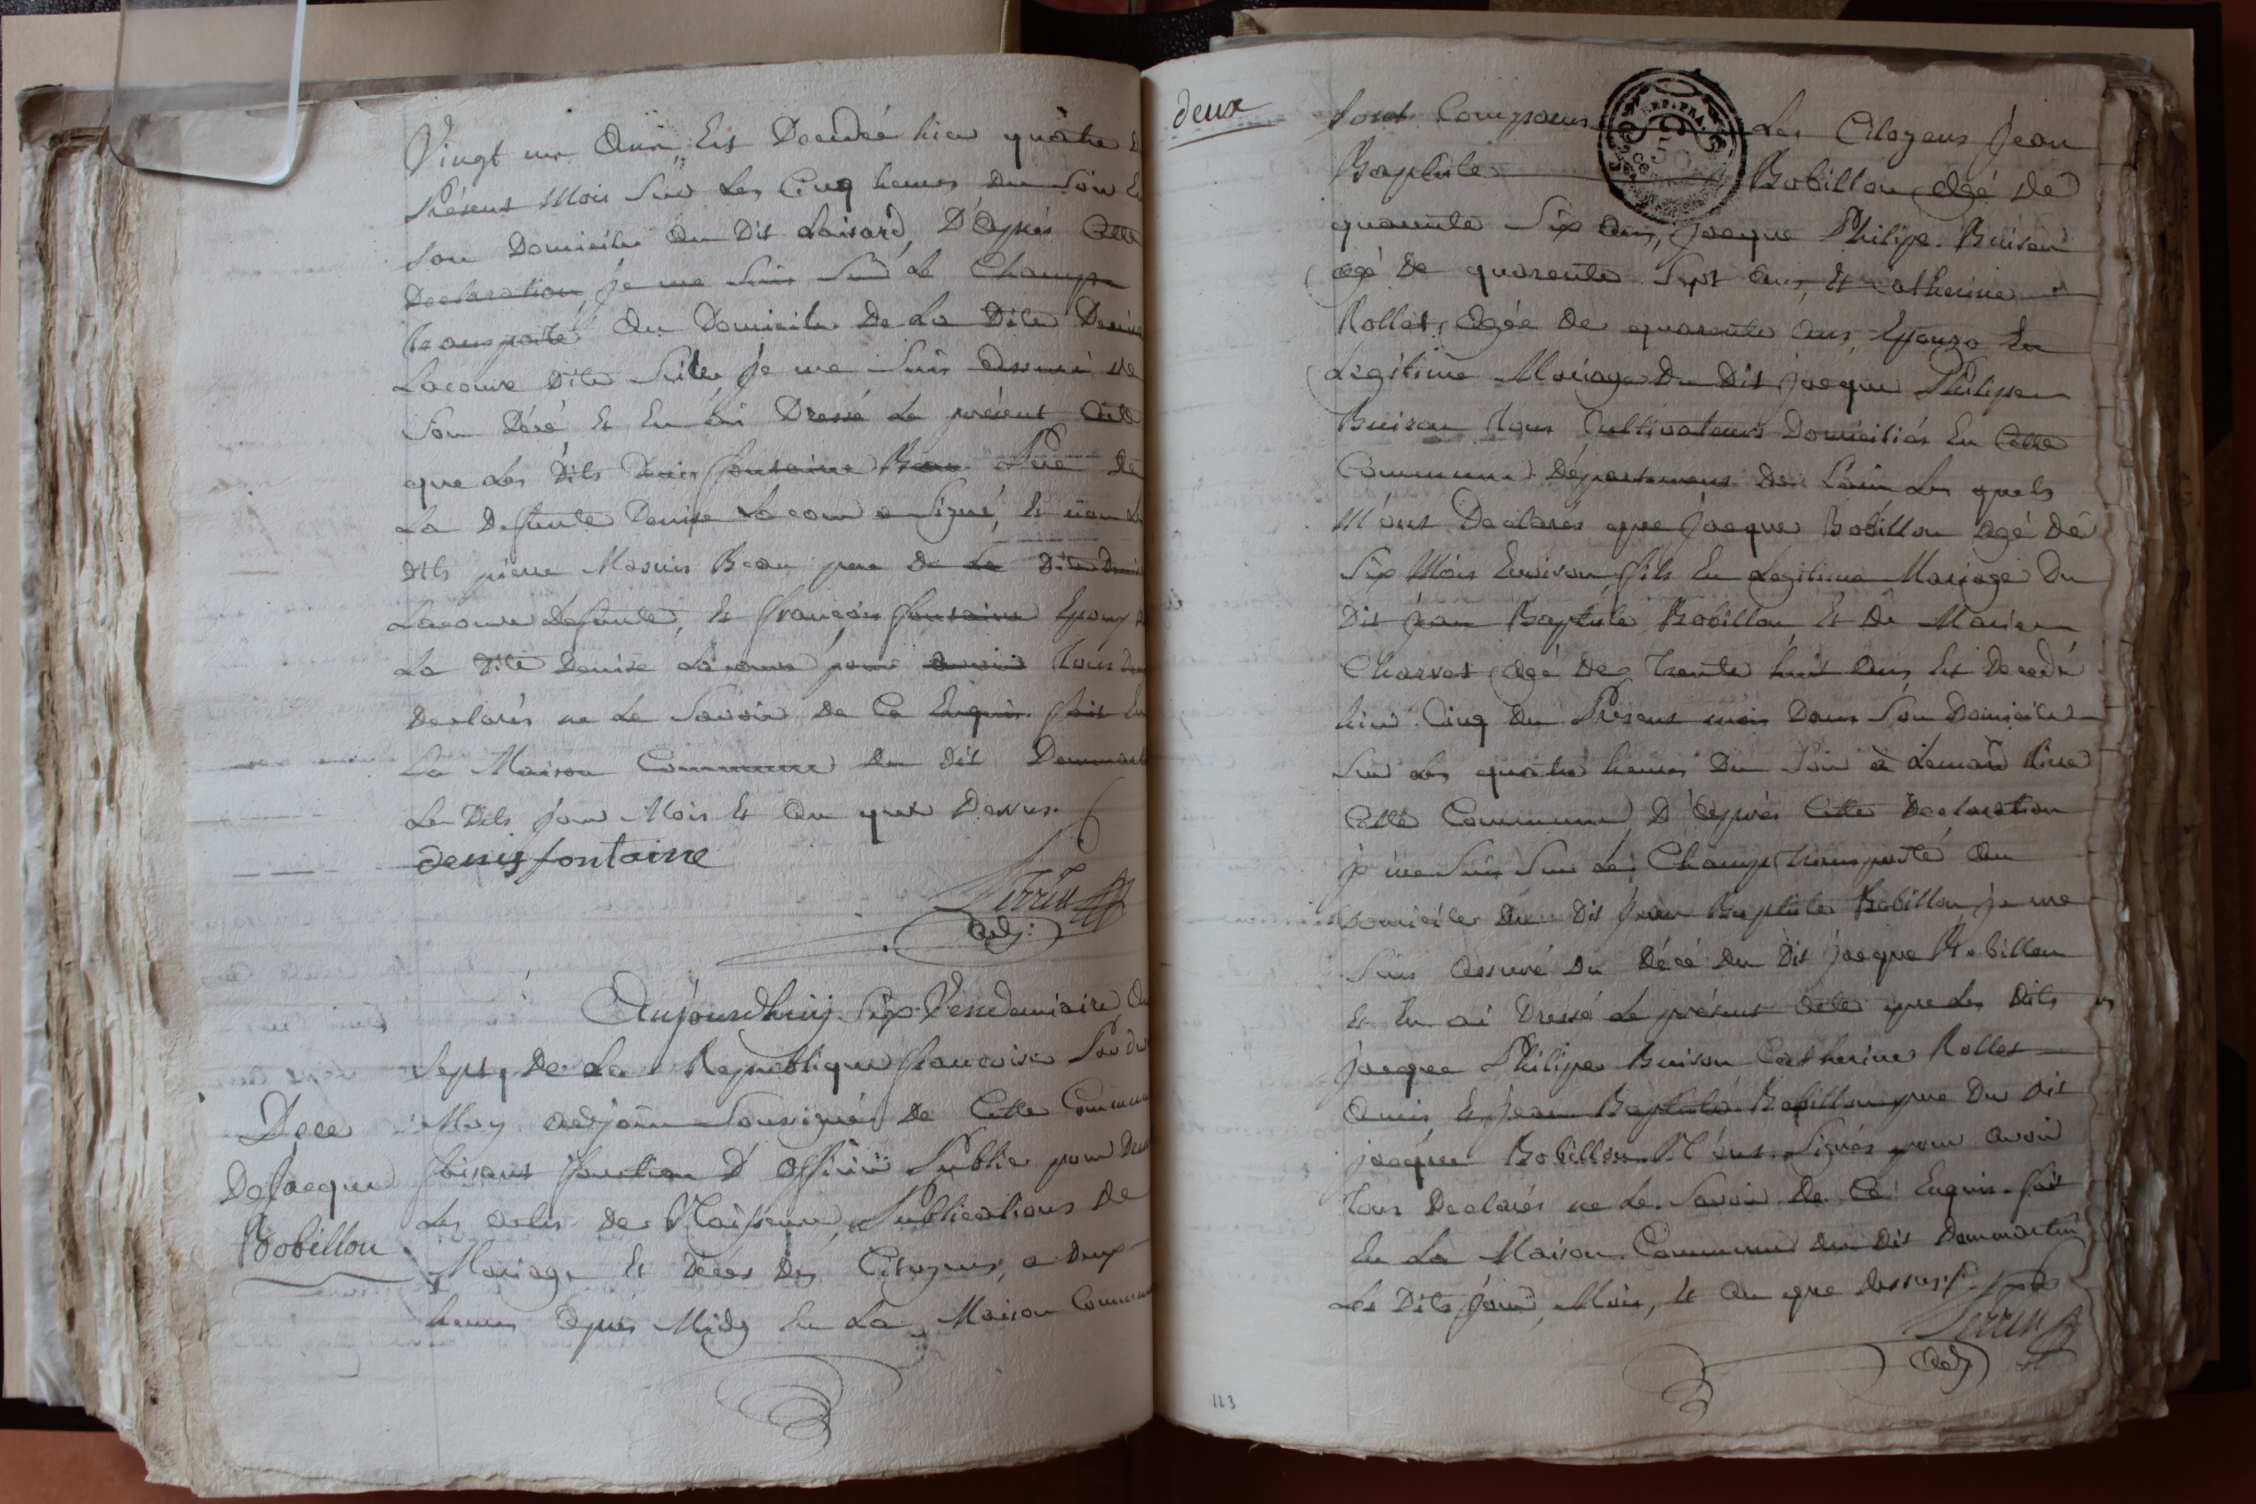 Vingt un Ans, Est Decedée hier quatre
Présent Mois Sur Les Cinq heures Du Soir En
Son Domicile Au Dit Loisard, D'Après Cette
Declaration, je me Suis Sur Le Champ
transporté Au Domicile De La Dite Denise
Lacour Dite Suite je me Suis Assuré de
Son Décé Et En ai Dressé Le présent Acte
que Les Dits Denis fontaine De
La Defunte Denise Lacour a Signé, Et non Les
Dits pierre Beau pere De La Dite Denise
Lacour Défunte, Et françois fontaine Epoux
La Dite Denise Lacour pour avoir tous
Declarés ne Le Savoir De Ce Enquis. fait En
La Maison Commune du Dit Dommartin
Les Dits jour Mois Et An que Dessus.
denis fontaine
Perrin
Adj:
Aujourdhuij Six Vendemiaire, An
Sept, De La Republique francoise
Dece
De Jacque
Bobillou
Moy Adjoin Sousigné De Cette Commune
faisant fonction D'Officier Public pour
Les Actes De Naissance, Publications De
Mariage Et Décés Des Citoyens, a Deux
heures Apres Midy En La Maison Commune
deux
Sont Comparus Les Citoyens Jean
REP. FRA.
Baptiste Bobillou Agé De
quarente Six Ans, jacque Philipe Buison
agé De quarente Sept Ans, Et Catherine
Rollet, Agée De quarente Ans, Epouze En
Légitime Mariage Du Dit jacque Philipe
Buison tous Cultivateurs Domiciliés En Cette
Commune Département De Lain Les quels
M'ont Declarés que jacque Bobillou Agé De
Six Mois Environ fils En Legitime Mariage Du
Dit jean Baptiste Bobillou Et De Marie
Charvet Agé De Trente huit Ans, Est Decedé
hier Cinq Du Présent mois Dans Son Domicile
Sur Les quatre heures Du Soir à
Cette Commune D'Après Cette Declaration
je me Suis Sur Le Champ transporté Au
Domicile Du Dit Jean Baptiste Bobillou, je me
Suis Assuré Du Décé Du Dit jacque Bobillou
Et En ai Dressé Le présent Acte que Les Dits
jacque Philipe Buison Catherine Rollet
Amis, Et jean Baptiste Bobillou pere Du Dit
jacque Bobillou N'ont Signés pour avoir
tous Declarés ne Le Savoir De Ce Enquis. fait
En La Maison Commune du Dit Dommartin
Les Dits jour, Mois, Et An que dessus.
Perrin
Adj
123